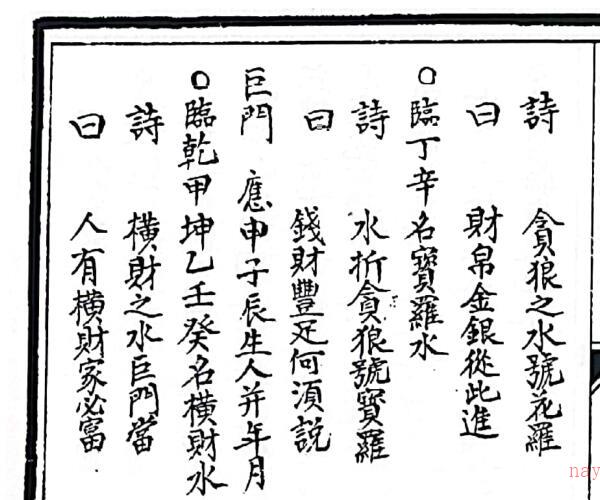 詩 貪狼之水號花羅
曰 財帛金銀從此進
○臨丁辛名寳羅水
詩 水折貪狼號寳羅
曰 錢財豐足何湏説
巨門 應申子辰生人并年月
○臨乾甲坤乙壬癸名横財水
詩 横財之水巨門當
曰 人有横財家必富
nay